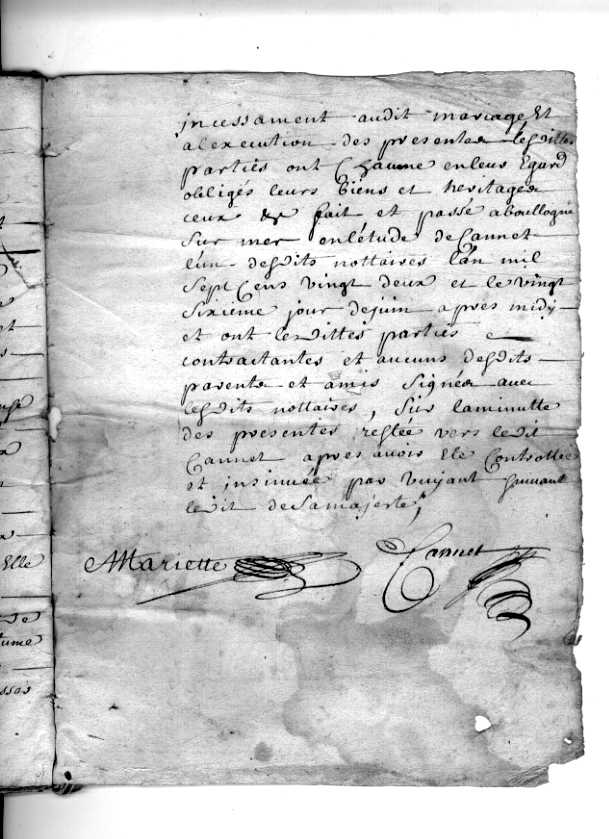 jncessament audit mariage, Et
alexecution des presentes lesditts
parties ont Chacune enleus Egard
obligés leurs biens et heritages
ceux fait et passé aboullogne
sur mer enlétude de Cannet
lun desdits nottaires L'an mil
sept Cens vingt deux et le vingt
sixieme jour dejuin apres midy
et ont lesdittes parties
contractantes et aucuns desdits
parents et amis signés avec
lesdits nottaires, sur laminutte
des presentes restée vers ledit
Cannet apres avoir Ete Controllée
et jnsinuée par
ledit desamajesté,
Mariette Cannet
Elle
tume